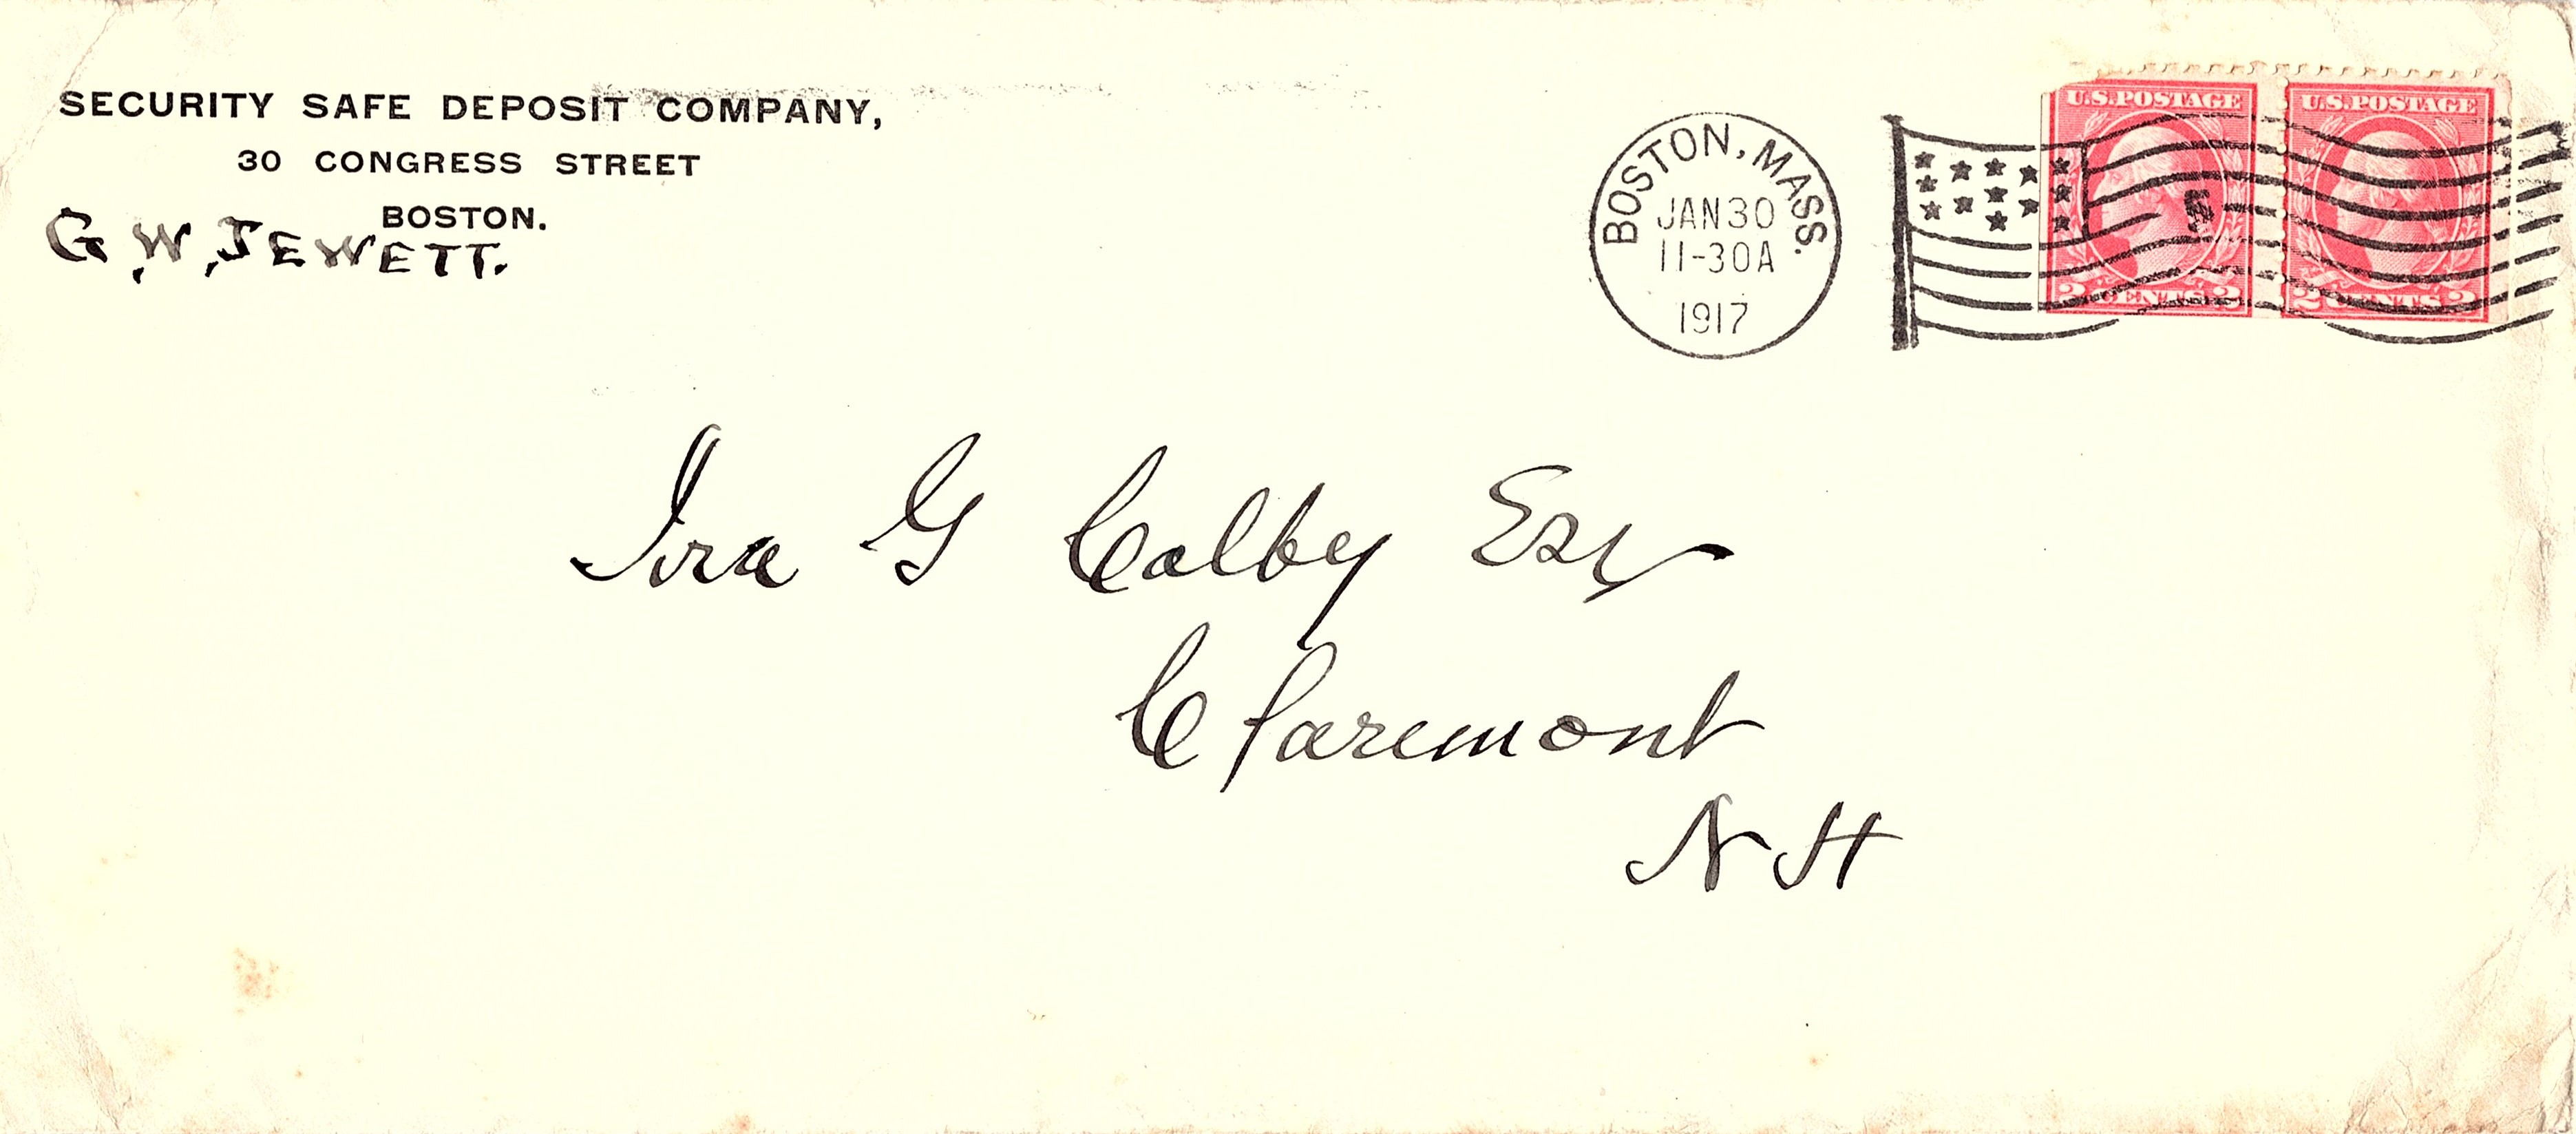 SECURITY SAFE DEPOSIT COMPANY,
30 CONGRESS STREET
BOSTON.
G.W.JEWETT.
BOSTON, MASS.
JAN30
11-30A
1917
U.S.POSTAGE
2 CENTS 2
U.S.POSTAGE
2 CENTS 2
Ira G Colby Esq
Claremont
N H